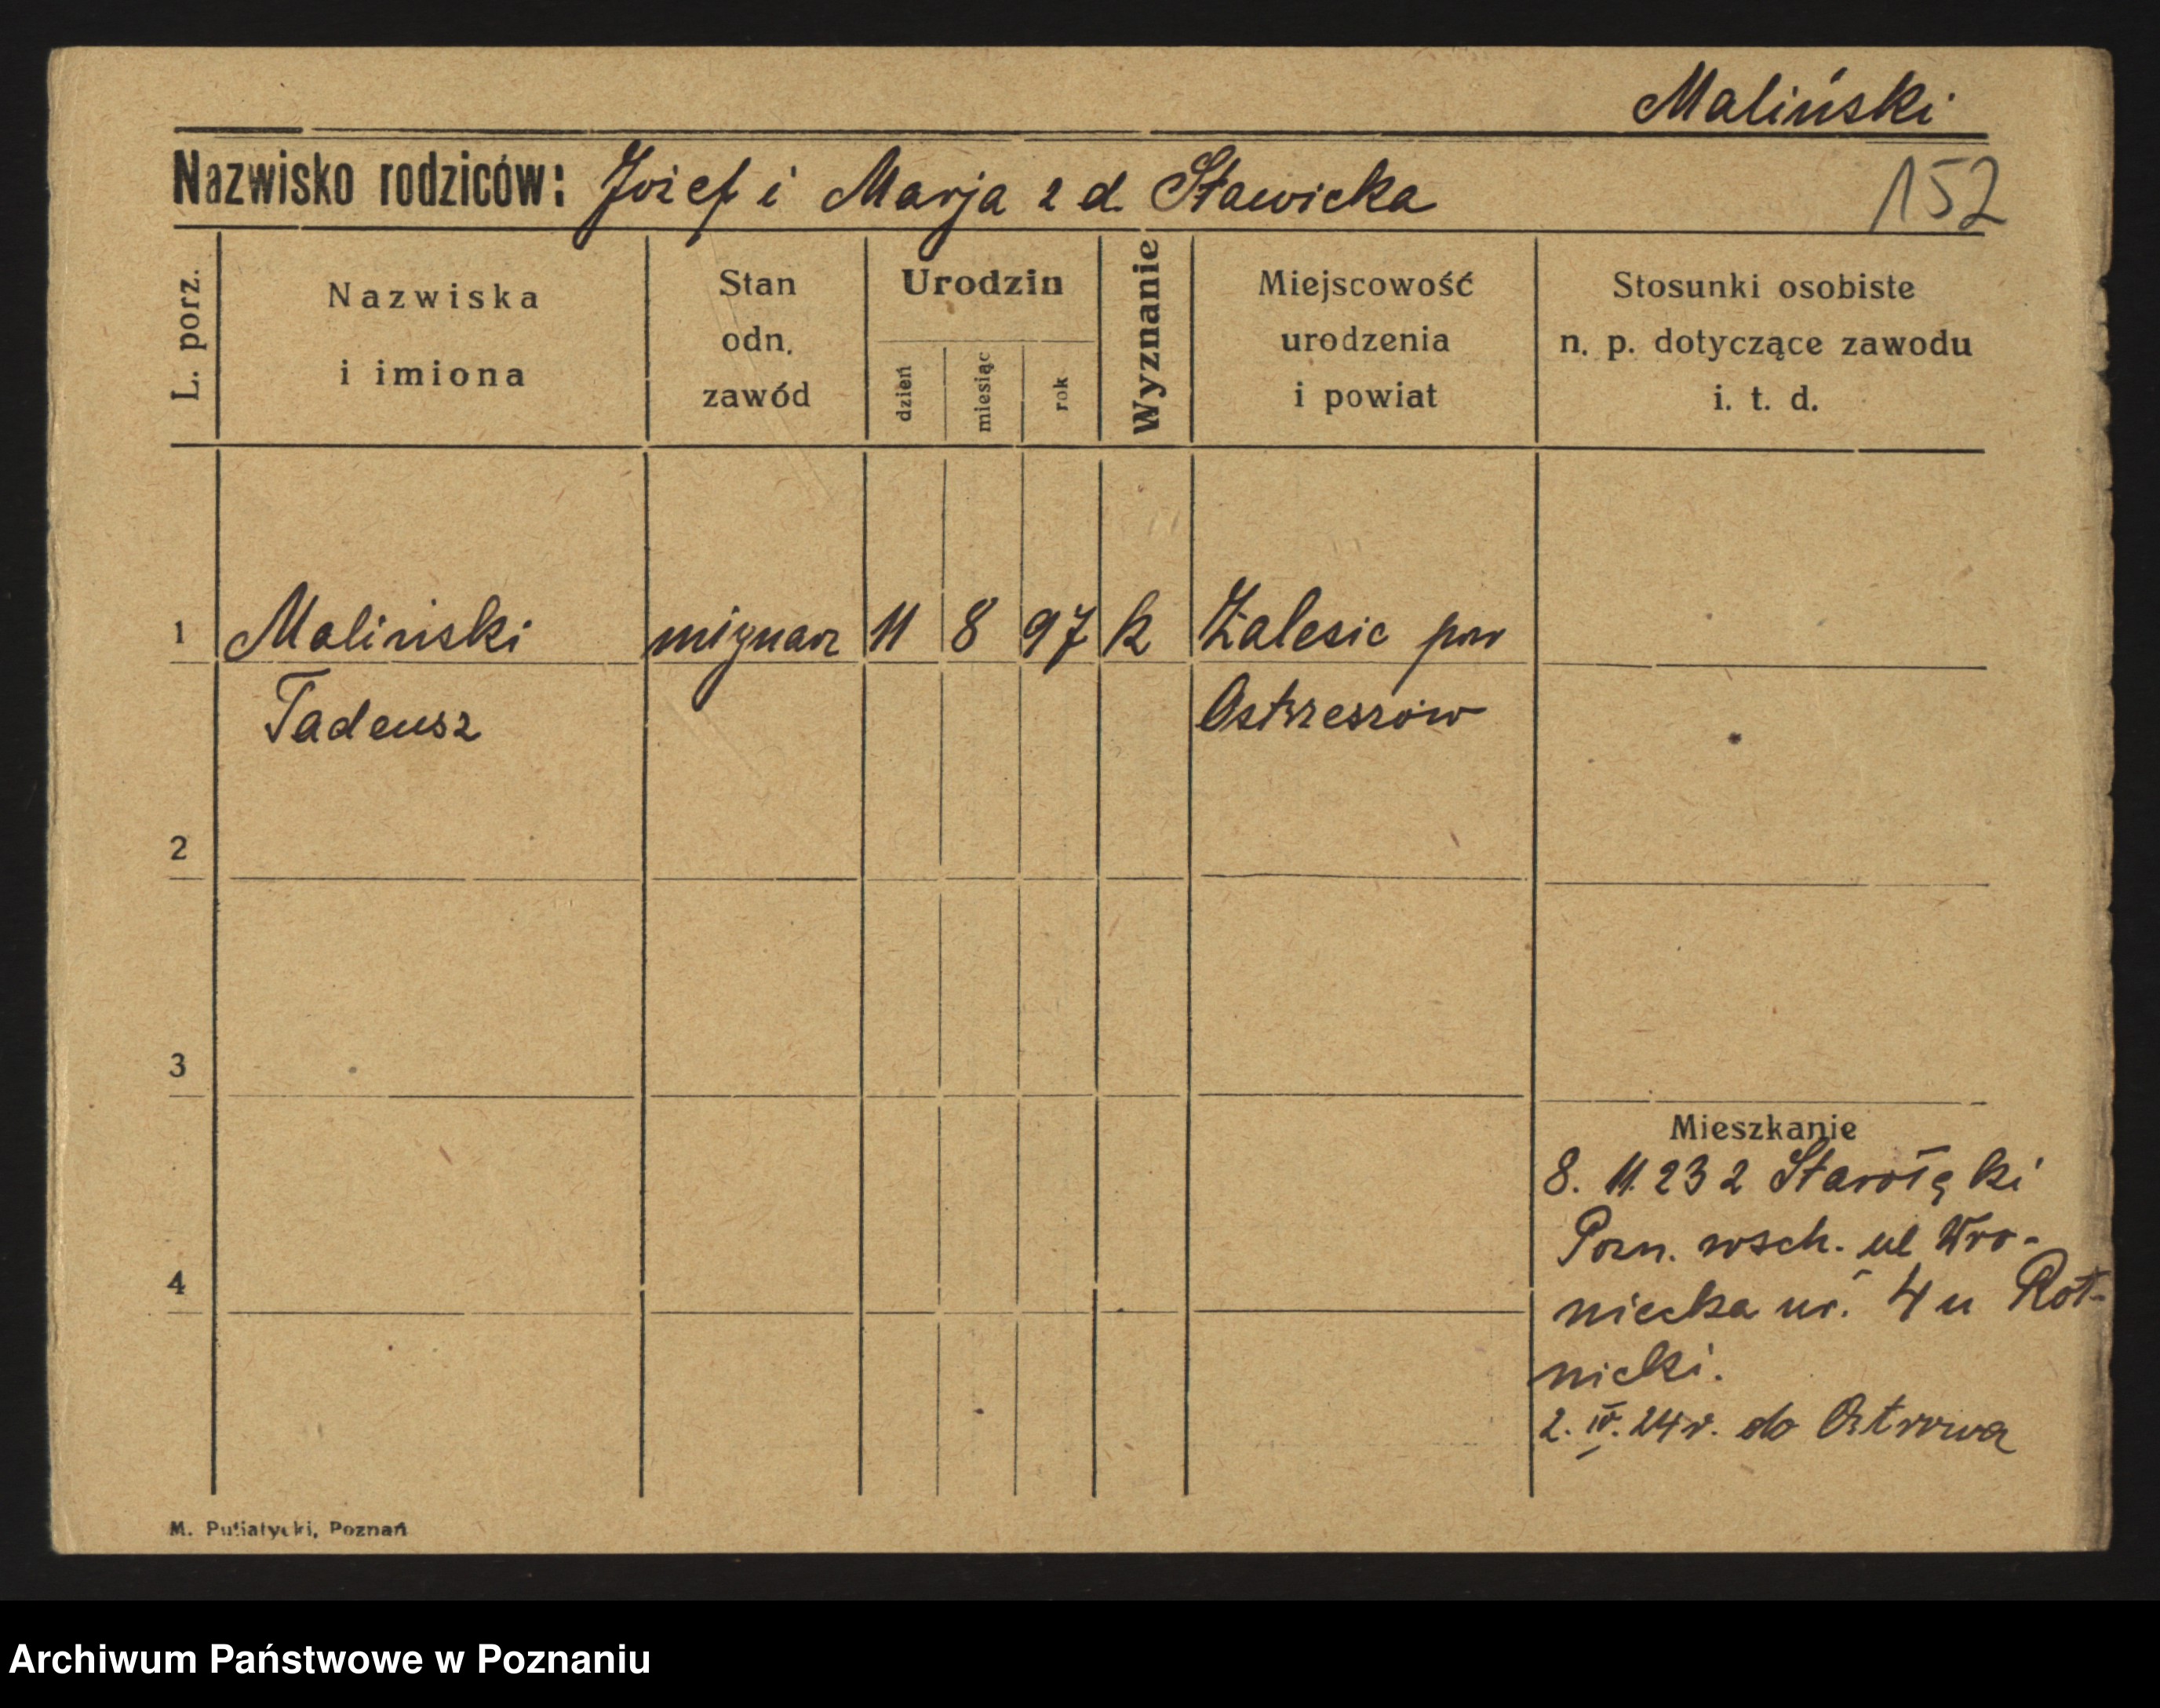 Maliński
Nazwisko rodziców: Józef i Marja z d. Sławicka
152
L. porz.
Nazwiska
i imiona
Stan
odn.
zawód
Urodzin
dzień
miesiąc
rok
Wyznanie
Miejscowość
urodzenia
i powiat
Stosunki osobiste
n. p. dotyczące zawodu
i. t. d.
1 Maliński 11 8 97 k Zalesie pow
Tadeusz Ostrzeszów
2
3
4
Mieszkanie
8. 11. 23 z Starołęki
Pozn. wsch. ul Wro-
niecka nr. 4 u Rot-
nicki.
2. IV. 24 r. do Ostrowa
M. Putiatycki, Poznań
Archiwum Państwowe w Poznaniu